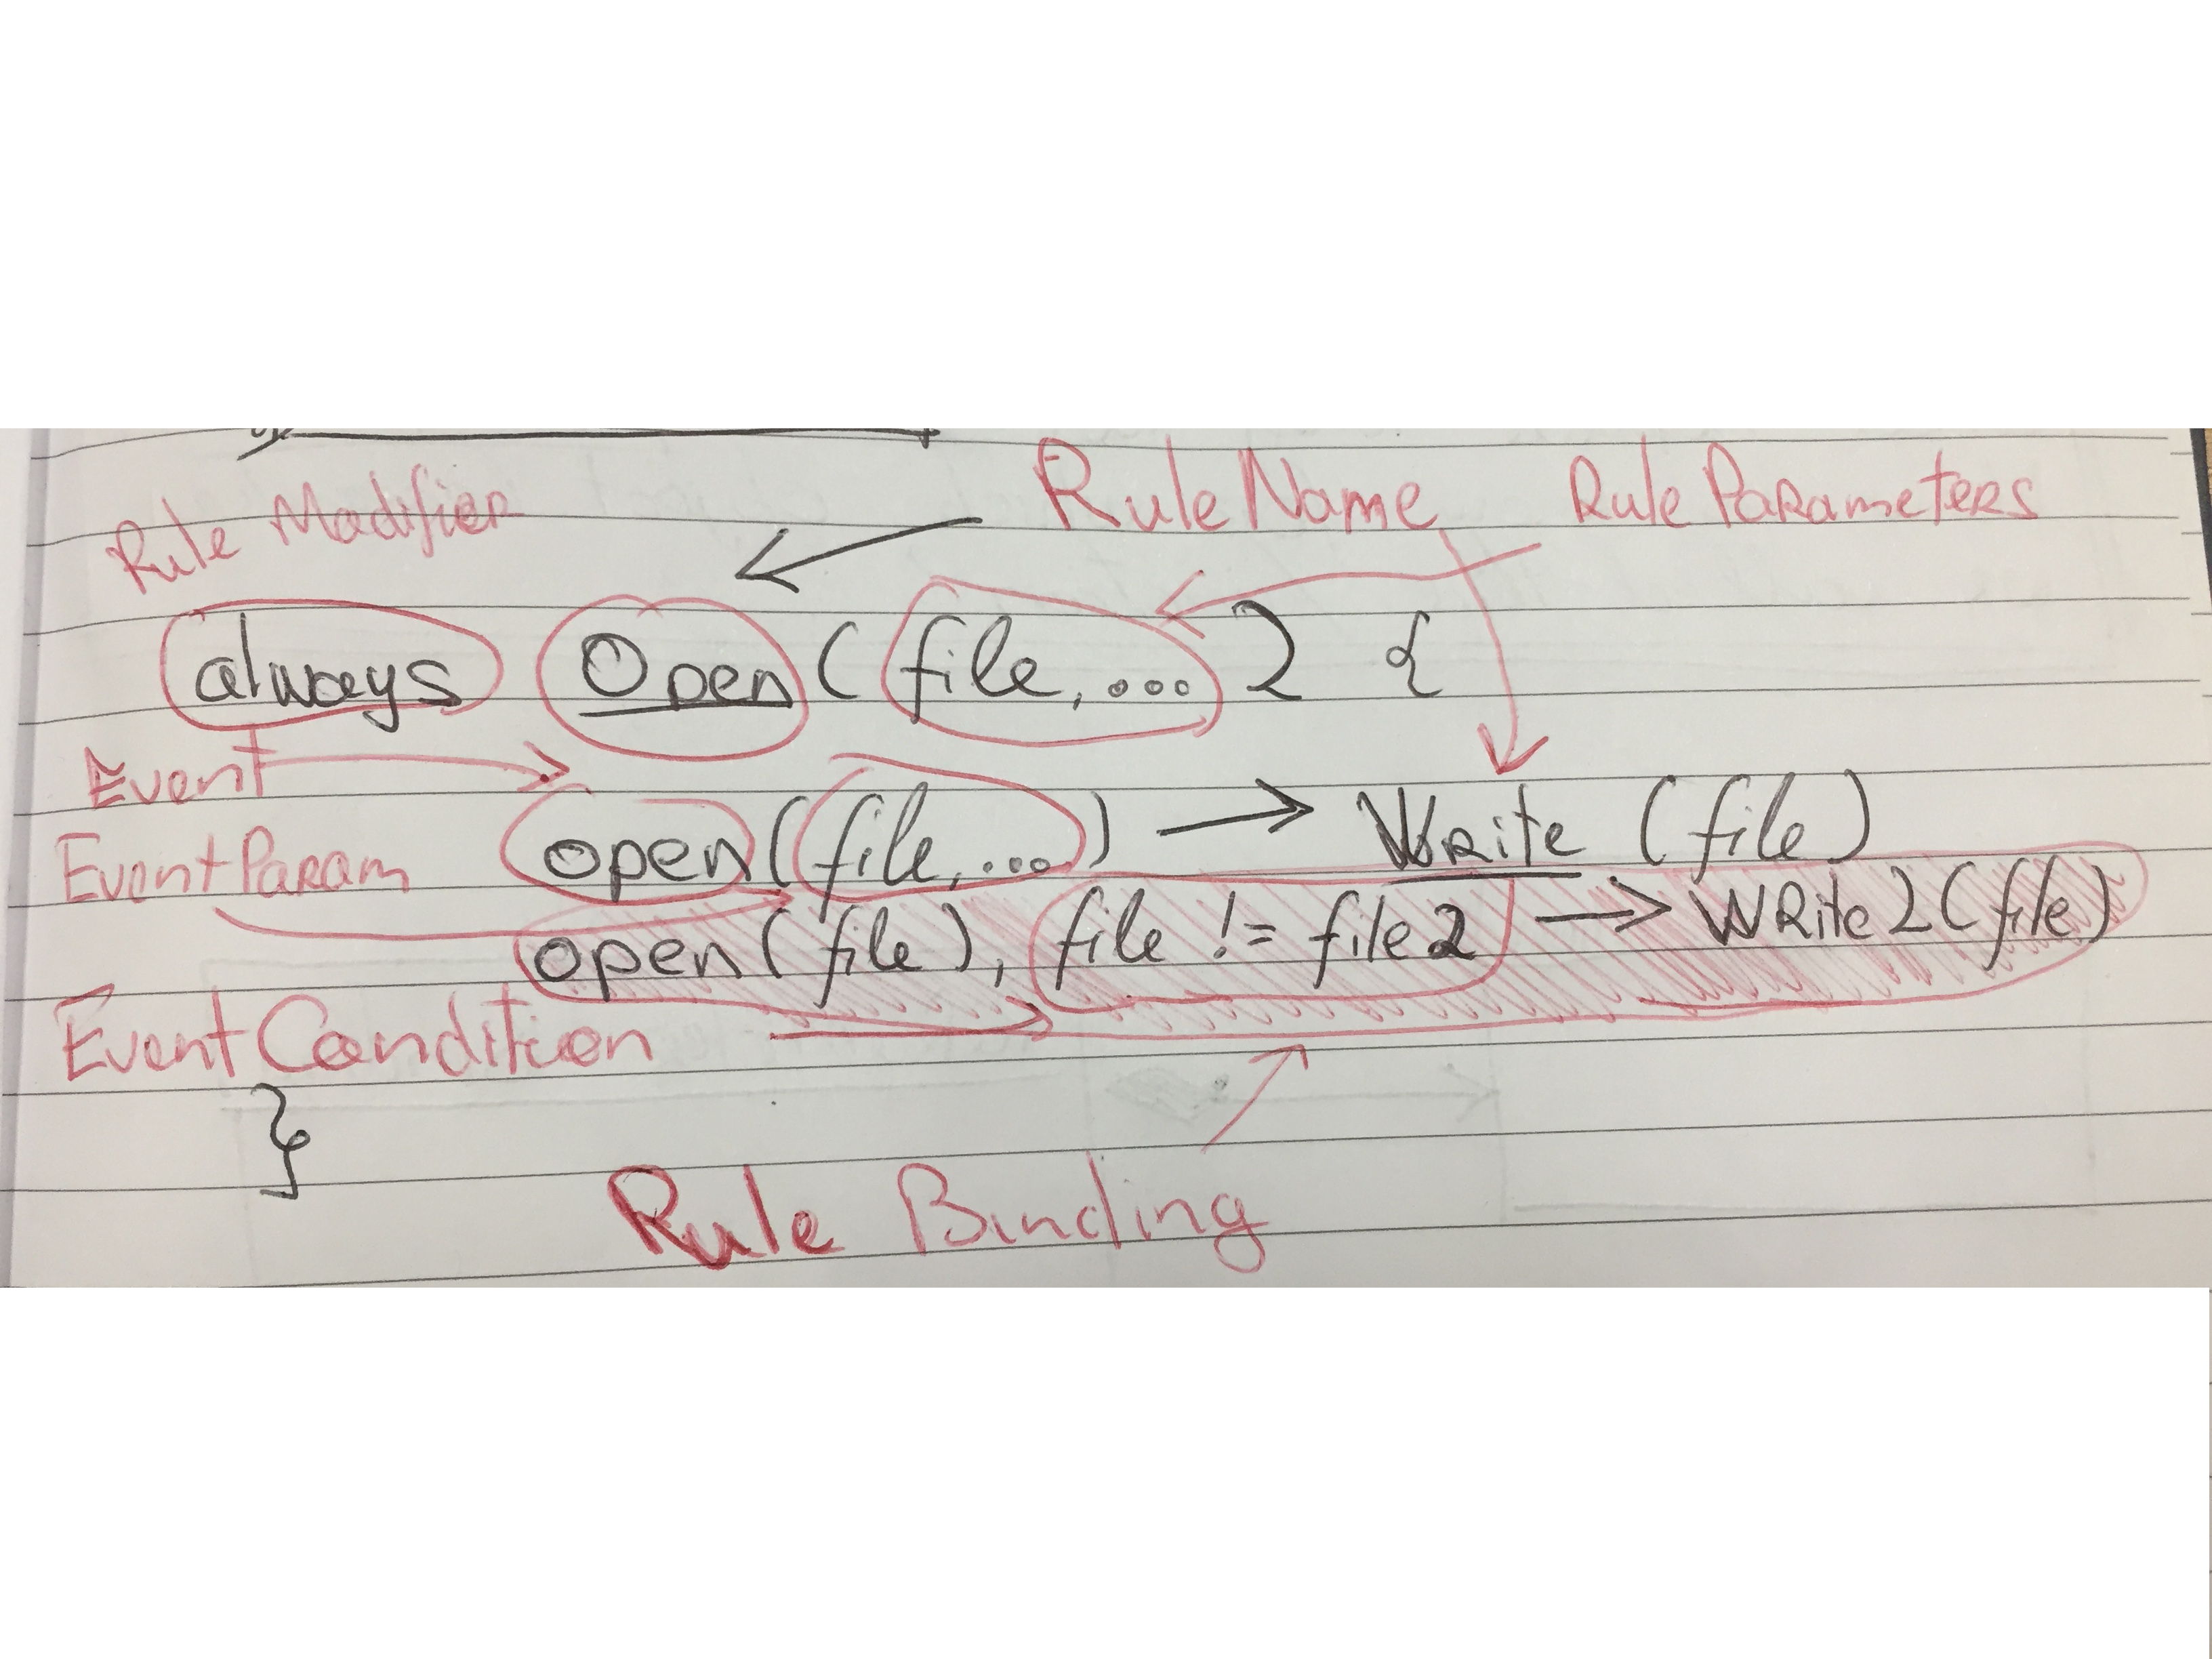 Rule Modifier RuleName Rule Parameters
always Open (file, ...) {
Event
open(file, ...) → Write (file)
EventParam
open(file), file != file2 → Write2(file)
EventCondition
}
Rule Binding